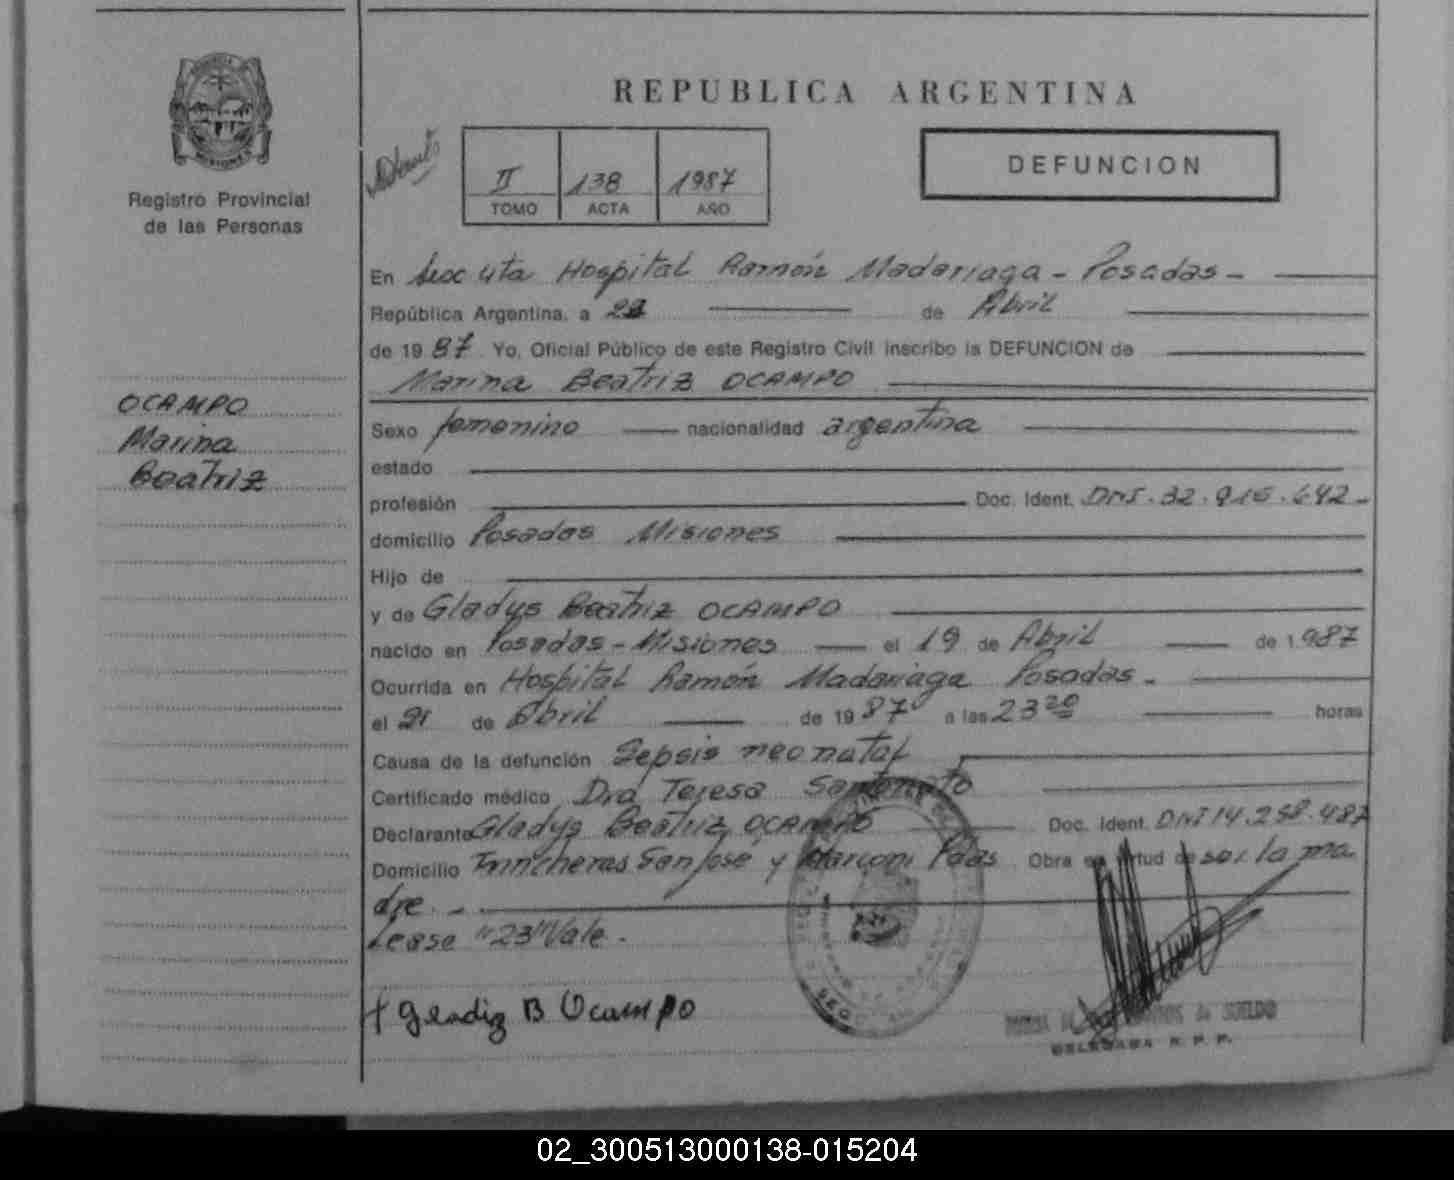 REPUBLICA ARGENTINA
DEFUNCION
II 138 1987
TOMO ACTA AÑO
MISIONES
Registro Provincial
de las Personas
OCAMPO
Marina
Beatriz
En Secc 4ta Hospital Ramón Madariaga - Posadas -
República Argentina, a de Abril
de 1987. Yo, Oficial Público de este Registro Civil inscribo la DEFUNCION de
Marina Beatriz OCAMPO
Sexo femenino nacionalidad argentina
estado
profesión Doc. Ident. DNI. 32.915.642-
domicilio Posadas Misiones
Hijo de
y de Gladys Beatriz OCAMPO
nacido en Posadas - Misiones el 19 de Abril de 1.987
Ocurrida en Hospital Ramón Madariaga Posadas -
el 21 de Abril de 1987 a las 23 20 horas
Causa de la defunción Sepsis neonatal
Certificado médico Dra Teresa
Declarante Gladys Beatriz OCAMPO Doc. Ident. DNI 14.258.487
Domicilio Trincheras San José y Marconi Pdas Obra en virtud de ser la ma
dre. -
Lease "23" Vale.
+ Gladiz B Ocampo
DELEGADA R. P. P.
02_300513000138-015204